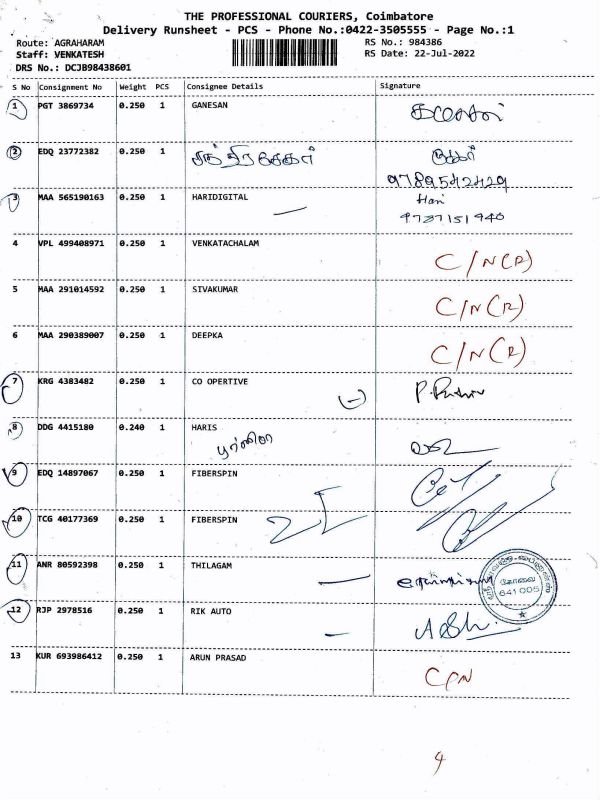 THE PROFESSIONAL COURIERS, Coimbatore
Delivery Runsheet - PCS - Phone No.:0422-3505555 - Page No.:1
Route: AGRAHARAM RS No.: 984386
Staff: VENKATESH RS Date: 22-Jul-2022
DRS No.: DCJB98438601
S No Consignment No Weight PCS Consignee Details Signature
1 PGT 3869734 0.250 1 GANESAN
2 EDQ 23772382 0.250 1
9789542429
3 MAA 565190163 0.250 1 HARIDIGITAL Hari
9787151940
4 VPL 499408971 0.250 1 VENKATACHALAM C/N(R)
5 MAA 291014592 0.250 1 SIVAKUMAR C/N(R)
6 MAA 290389007 0.250 1 DEEPKA C/N(R)
7 KRG 4383482 0.250 1 CO OPERTIVE
8 DDG 4415180 0.240 1 HARIS
9 EDQ 14897067 0.250 1 FIBERSPIN
10 TCG 40177369 0.250 1 FIBERSPIN
11 ANR 80592398 0.250 1 THILAGAM
கோவை
641 005
12 RJP 2978516 0.250 1 RIK AUTO
13 KUR 693986412 0.250 1 ARUN PRASAD C/N
4